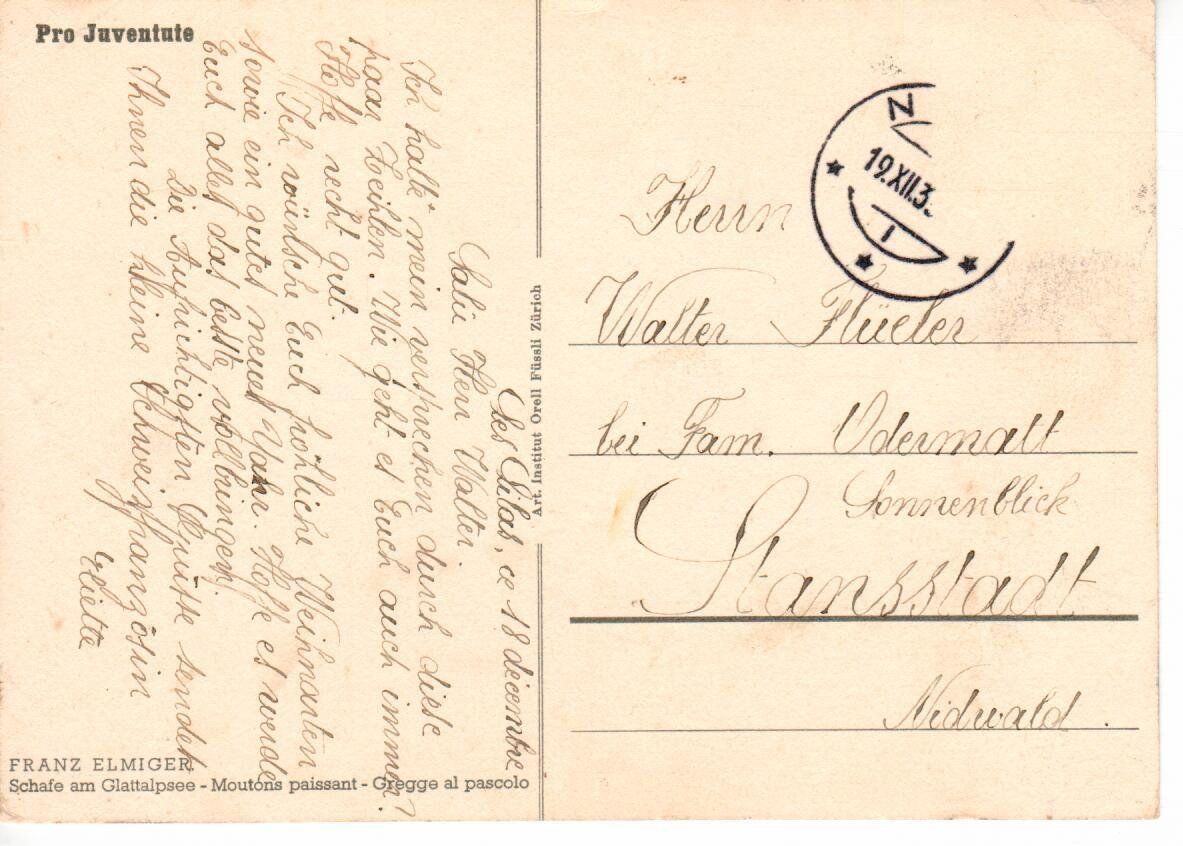 Pro Juventute
Les Lilas, ce 18 décembre
Salü Herr Walter.
Ich halte mein versprechen durch diese
paar Zeichlen. Wie geht es Euch auch immer?
Hoffe recht gut.
Ich wünsche Euch fröhliche Weihnachten
sowie ein gutes neues Jahr. Hoffe es werde
Euch alles das beste vollbringen.
Die Aufrichtigsten Grüsse sendet
Ihnen die kleine Schweizfranzösin
Eliette
FRANZ ELMIGER
Schafe am Glattalpsee - Moutons paissant - Gregge al pascolo
Art. Institut Orell Füssli Zürich
19.XII.3
Herrn
Walter Flüeler
bei Fam. Odermatt
Sonnenblick
Stansstadt
Nidwald.